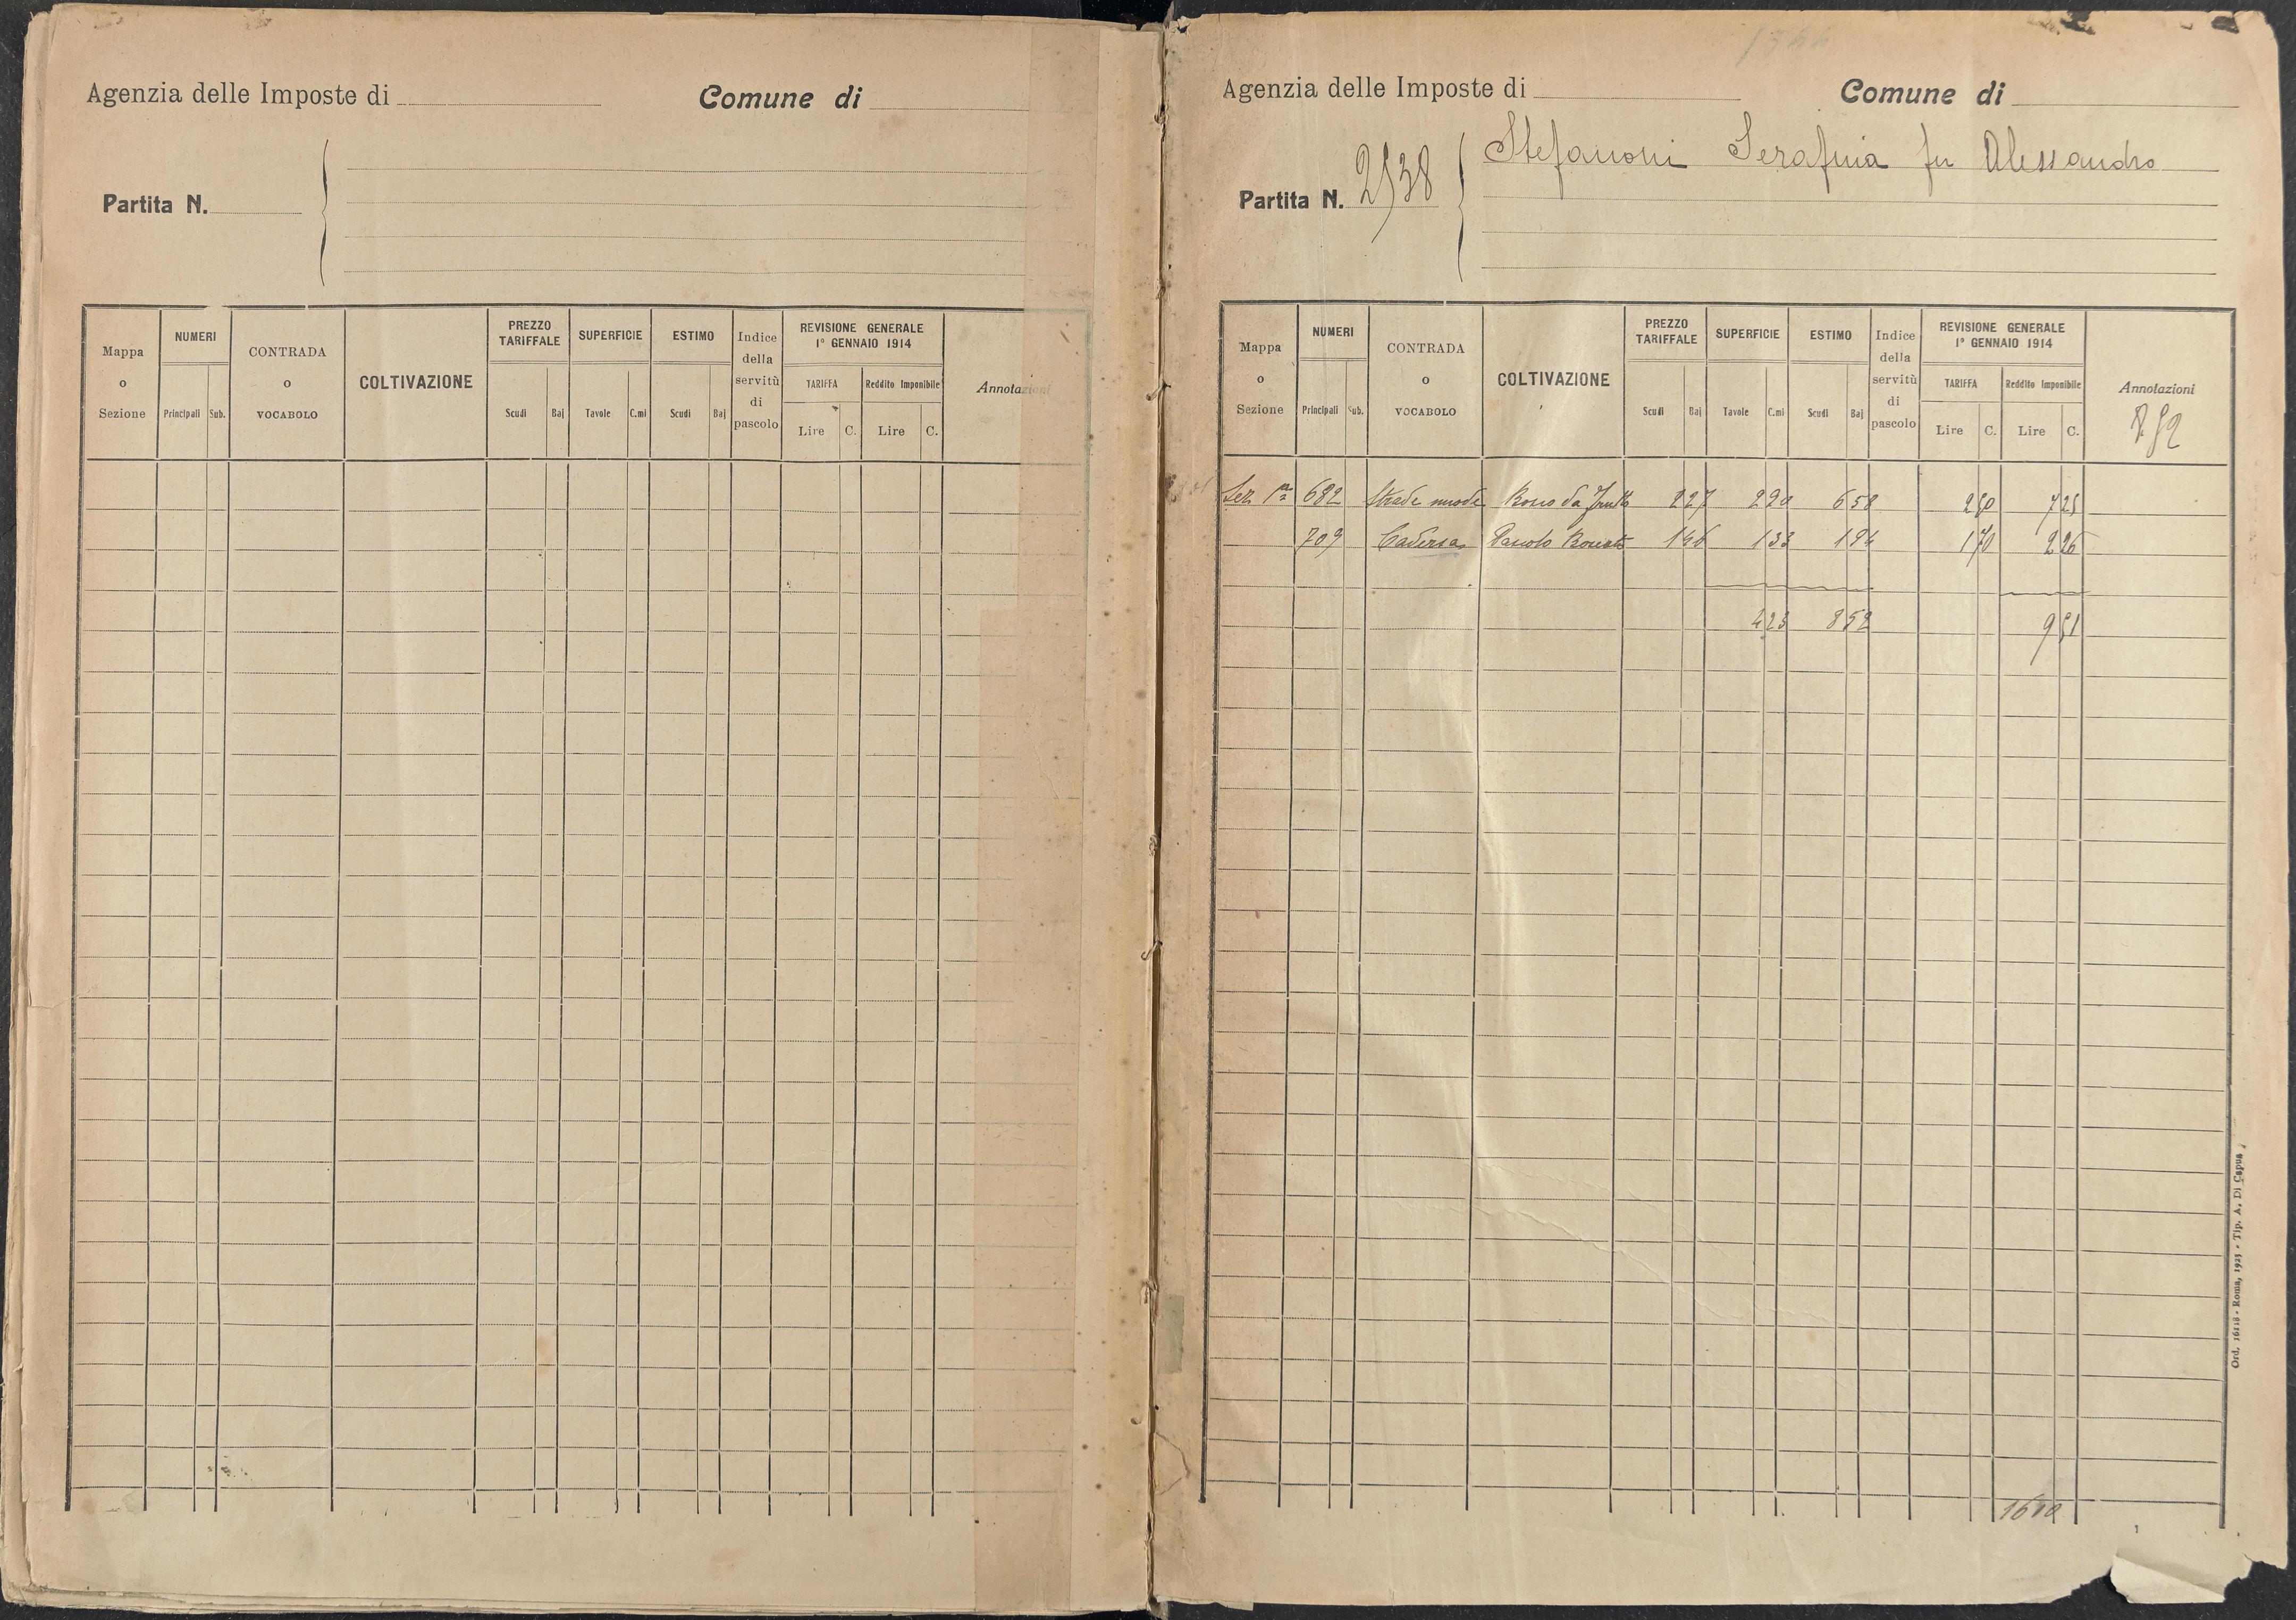 Agenzia delle Imposte di
Comune di
Partita N.
Mappa o Sezione
NUMERI
Principali
Sub.
CONTRADA o VOCABOLO
COLTIVAZIONE
PREZZO TARIFFALE
Scudi
Baj
SUPERFICIE
Tavole
C.mi
ESTIMO
Scudi
Baj
Indice della servitù di pascolo
REVISIONE GENERALE
1° GENNAIO 1914
TARIFFA
Lire
C.
Reddito Imponibile
Lire
C.
Annotazioni
1344
Agenzia delle Imposte di
Comune di
Partita N. 2538
Stefanoni Serafina fu Alessandro
Mappa o Sezione
NUMERI
Principali
Sub.
CONTRADA o VOCABOLO
COLTIVAZIONE
PREZZO TARIFFALE
Scudi
Baj
SUPERFICIE
Tavole
C.mi
ESTIMO
Scudi
Baj
Indice della servitù di pascolo
REVISIONE GENERALE
1° GENNAIO 1914
TARIFFA
Lire
C.
Reddito Imponibile
Lire
C.
Annotazioni
852
Sez 1ª 682 Strade nuode Bosco da frutto 2 27 2 90 6 58 2 50 7 25
709 Pascolo 1 46 1 33 1 94 1 70 2 26
4 23 8 52 9 51
1610
Ord. 16118 - Roma, 1925 - Tip. A. Di Capua